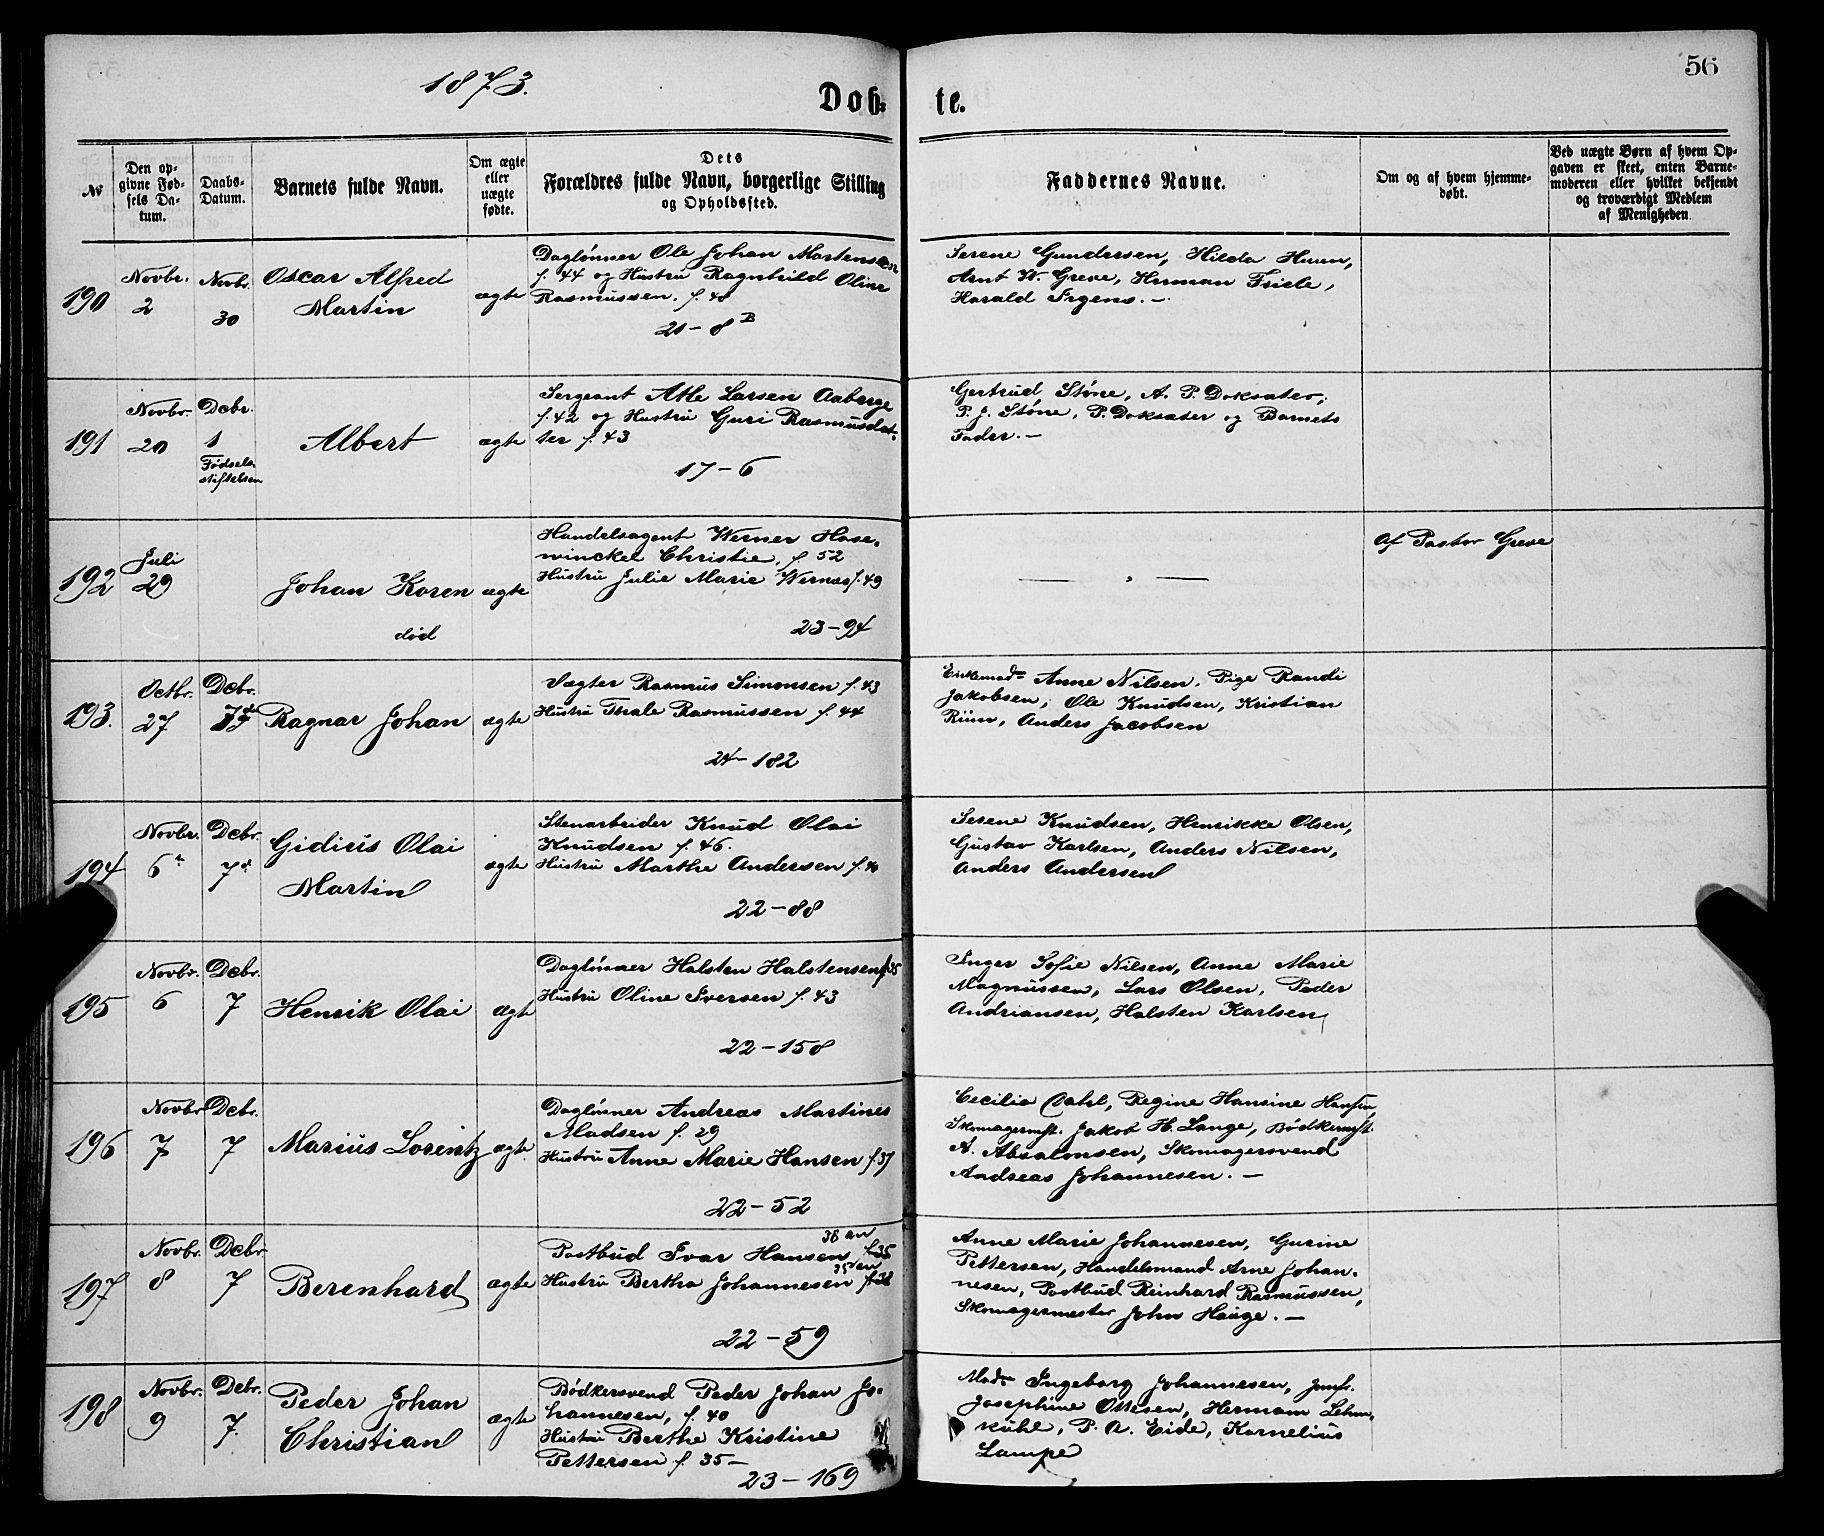 56
1873.
Døb= te.
№
Den opgivne Fødsels Datum.
Daabs-Datum.
Barnets fulde Navn.
Om ægte eller uægte fødte.
Dets Forældres fulde Navn, borgerlige Stilling og Opholdssted.
Faddernes Navne.
Om og af hvem hjemmedøbt.
Ved uægte Børn af hvem Opgaven er skeet, enten Barnemoderen eller hvilket bekjendt og troværdigt Medlem af Menigheden
190
Novbr. 2
Novbr. 30
Oscar Alfred
Martin
ægte
Daglønner Ole Johan Martensen
f. 44 og Hustru Ragnhild Oline
Rasmussen. f. 48
21 - 8 B
Serene Gundersen, Hilda Huun,
Arnt W. Greve, Herman Friele,
Harald Irgens. -
191
Novbr. 20
Debr. 1
Fødsels-
stiftelsen
Albert
ægte
Sergeant Atle Larsen Aaberge
f. 42 og Hustru Guri Rasmusdat-
ter f. 43
17 - 6
Gertrud Støne, A. P. Doksater,
P. J. Støne, P. Doksater og Barnets
Fader. -
192
Juli 29
Johan Koren
død
ægte
Handelsagent Werner Hase-
winckel Christie, f. 52
Hustru Julie Marie Wernæs f. 49
23 - 94
— " —
Af Pastor Greve
193.
Octbr. 27
Debr.
Ragnar Johan
ægte
Vægter Rasmus Simonsen f. 43
Hustru Thale Rasmussen f. 44
24 - 182
Enkemad. Anne Nilsen, Pige Randi
Jakobsen; Ole Knudsen, Kristian
Riim, Anders Jacobsen
194
Novbr. 6
Debr. 7
Gidius Olai
Martin
ægte
Stenarbeider Knud Olai
Knudsen f. 46.
Hustru Marthe Andersen f. 40
22 - 88
Serene Knudsen, Henrikke Olsen,
Gustav Karlsen, Anders Nilsen,
Anders Andersen
195
Novbr. 6
Debr. 7
Henrik Olai
ægte
Daglønner Halsten Halstensen f. 35
Hustru Oline Iversen f. 43
22 - 158
Inger Sofie Nilsen, Anne Marie
Magnussen, Lars Olsen, Peder
Andriansen, Halsten Karlsen,
196
Novbr 7
Debr. 7
Marius Lorentz
ægte.
Daglønner Andreas Martines
Madsen f. 29
Hustru Anne Marie Hansen f. 37
22 - 52
Cecilia Dahl, Regine Hansine Hansen,
Skomagermst. Jakob H. Lange, Bødkermst.
A. Absalonsen, Skomagersvend
Andreas Johannesen. -
197
Novbr. 8
Debr. 7
Berenhard
ægte
38 an
Postbud Ivar Hansen f. 35
35 an
Hustru Bertha Johannesen f. 38
22 - 59
Anne Marie Johannesen, Gurine
Pettersen, Handelsmand Arne Johan-
nesen, Postbud Reinhard Rasmussen,
Skomagermester John Hauge. -
198
Novbr. 9
Debr. 7.
Peder Johan
Christian
ægte
Bødkersvend Peder Johan Jo-
hannesen, f. 40
Hustru Berthe Kristine
Pettersen f. 35 -
23 - 169
Mad. Ingeborg Johannesen, Jomfr.
Josephine Ottesen, Hermann Lehm-
kuhe, P. A. Eide, Kornelius
Lampe